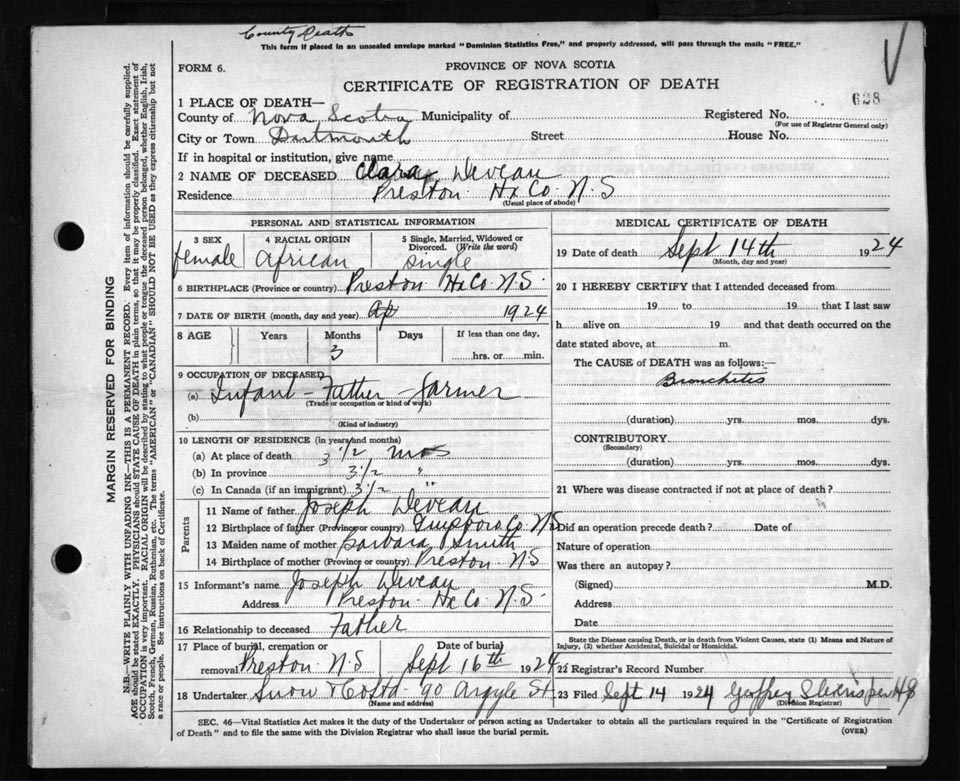 County Death
This form if placed in an unsealed envelope marked "Dominion Statistics Free," and properly addressed, will pass through the mails "FREE."
FORM 6.
PROVINCE OF NOVA SCOTIA
CERTIFICATE OF REGISTRATION OF DEATH
628
1 PLACE OF DEATH—
County of Nova Scotia Municipality of Registered No.
(For use of Registrar General only)
City or Town Dartmouth Street House No.
If in hospital or institution, give name
2 NAME OF DECEASED Clara Deveau
Residence Preston Hx Co. N.S
(Usual place of abode)
PERSONAL AND STATISTICAL INFORMATION
3 SEX 4 RACIAL ORIGIN 5 Single, Married, Widowed or Divorced. (Write the word)
female African single
6 BIRTHPLACE (Province or country) Preston Hx Co. N.S.
7 DATE OF BIRTH (month, day and year) Ap 1924
8 AGE Years Months Days If less than one day,
3 hrs. or min.
9 OCCUPATION OF DECEASED
(a) Infant – Father – farmer
(Trade or occupation or kind of work)
(b)
(Kind of industry)
10 LENGTH OF RESIDENCE (in years and months)
(a) At place of death 3 1/2 mos
(b) In province 3 1/2 "
(c) In Canada (if an immigrant) 3 1/2 "
Parents
11 Name of father Joseph Deveau
12 Birthplace of father (Province or country) Co. NS
13 Maiden name of mother Barbara Smith
14 Birthplace of mother (Province or country) Preston N S
15 Informant's name Joseph Deveau
Address Preston Hx Co. N.S.
16 Relationship to deceased Father
17 Place of burial, cremation or removal Preston N.S Date of burial Sept 16th 1924
18 Undertaker Snow & Co Ltd 90 Argyle St.
(Name and address)
MEDICAL CERTIFICATE OF DEATH
19 Date of death Sept 14th 1924
(Month, day and year)
20 I HEREBY CERTIFY that I attended deceased from
19 to 19 that I last saw
h alive on 19 and that death occurred on the
date stated above, at m.
The CAUSE of DEATH was as follows:—
Bronchitis
(duration) yrs. mos. dys.
CONTRIBUTORY
(Secondary)
(duration) yrs. mos. dys.
21 Where was disease contracted if not at place of death?
Did an operation precede death? Date of
Nature of operation
Was there an autopsy?
(Signed) M.D.
Address
Date
State the Disease causing Death, or in death from Violent Causes, state (1) Means and Nature of Injury, (2) whether Accidental, Suicidal or Homicidal.
22 Registrar's Record Number
23 Filed Sept 14 1924 Geoffrey
(Division Registrar)
SEC. 46—Vital Statistics Act makes it the duty of the Undertaker or person acting as Undertaker to obtain all the particulars required in the "Certificate of Registration
of Death" and to file the same with the Division Registrar who shall issue the burial permit.
(OVER)
MARGIN RESERVED FOR BINDING
N.B.—WRITE PLAINLY WITH UNFADING INK—THIS IS A PERMANENT RECORD. Every item of information should be carefully supplied.
AGE should be stated EXACTLY. PHYSICIANS should STATE CAUSE OF DEATH in plain terms, so that it may be properly classified. Exact statement of
OCCUPATION is very important. RACIAL ORIGIN will be described by stating to what people or tongue the deceased person belonged, whether English, Irish,
Scotch, French, German, Russian, Ruthenian, etc. The terms "AMERICAN" or "CANADIAN" SHOULD NOT BE USED as they express citizenship but not
a race or people. See instructions on back of Certificate.